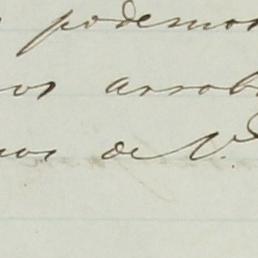 podemos
os arrob
nos de V.